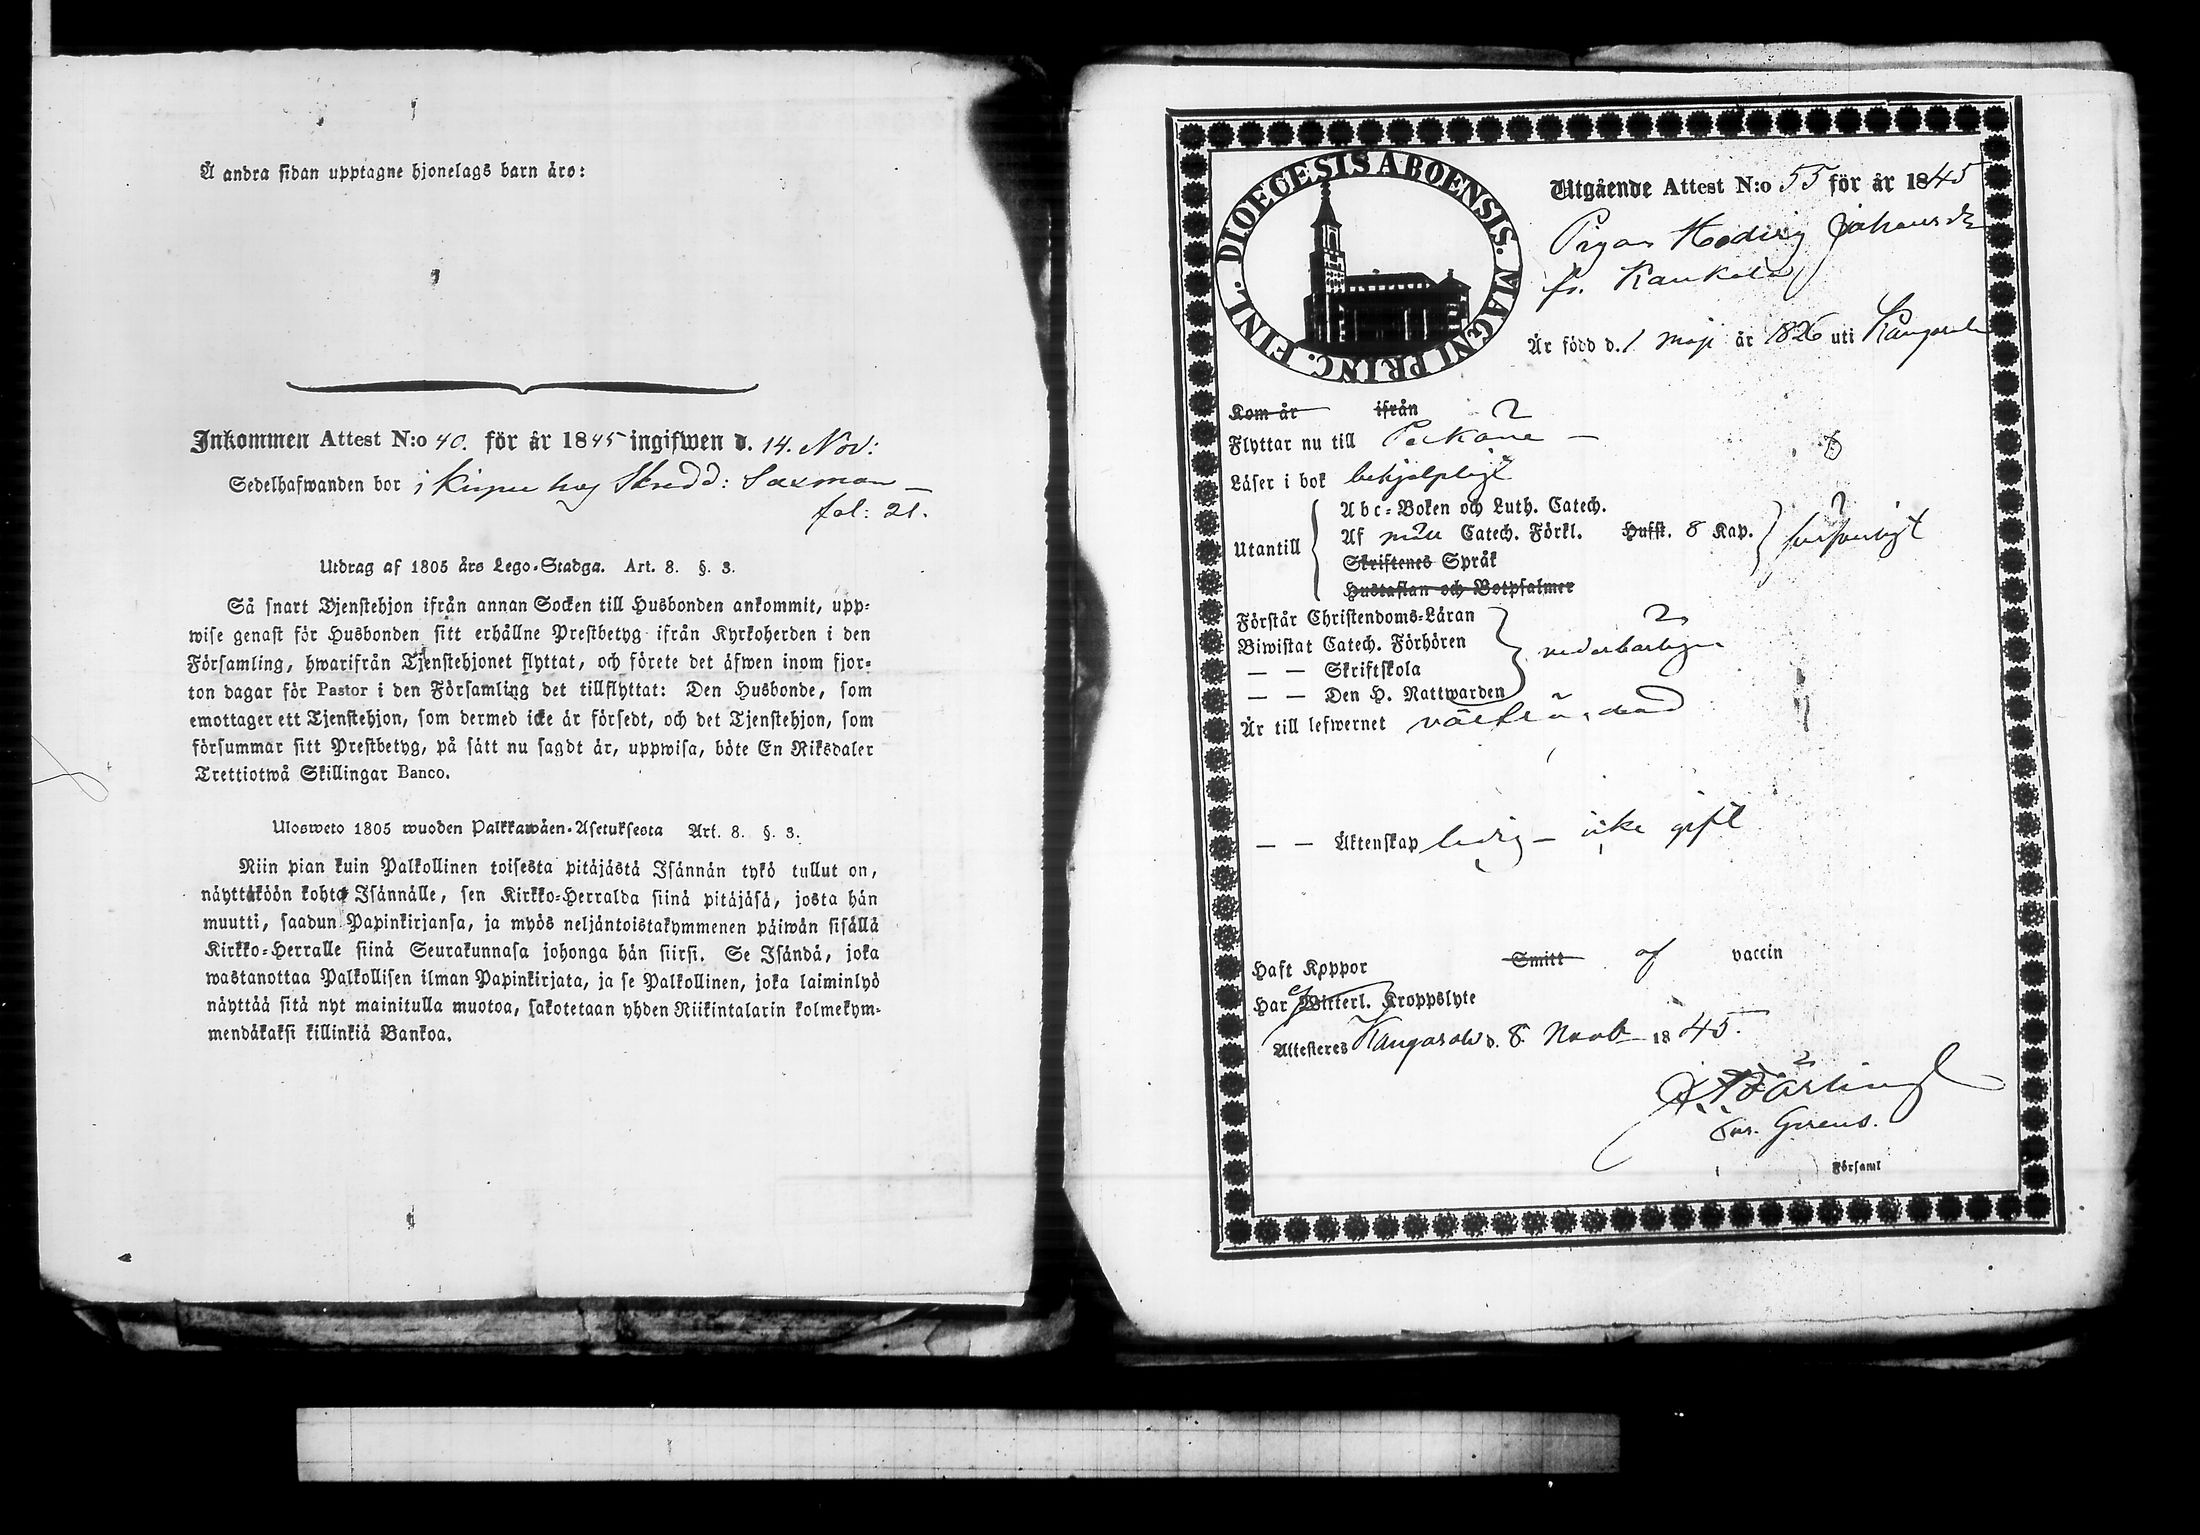 Å andra sidan upptagne hjonelags barn äro:
Inkommen Attest N:o 40. för år 1845 ingifwen d. 14. Nov:
Sedelhafwanden bor i hos Skredd: Saxman —
fol: 21.
Utdrag af 1805 års Lego-Stadga. Art. 8. §. 3.
Så snart Tjenstehjon ifrån annan Socken till Husbonden ankommit, upp-
wise genast för Husbonden sitt erhållne Prestbetyg ifrån Kyrkoherden i den
Församling, hwarifrån Tjenstehjonet flyttat, och förete det äfwen inom fjor-
ton dagar för Pastor i den Församling det tillflyttat: Den Husbonde, som
emottager ett Tjenstehjon, som dermed icke är försedt, och det Tjenstehjon, som
försummar sitt Prestbetyg, på sätt nu sagdt är, uppwisa, böte En Riksdaler
Trettiotwå Skillingar Banco.
Ulosweto 1805 wuoden Palkkawäen-Asetuksesta Art. 8. §. 3.
Niin pian kuin Palkollinen toisesta pitäjästä Isännän tykö tullut on,
näyttäköön kohta Isännälle, sen Kirkko-Herralda siinä pitäjäsä, josta hän
muutti, saadun Papinkirjansa, ja myös neljäntoistakymmenen päiwän sisällä
Kirkko-Herralle siinä Seurakunnasa johonga hän siirsi. Se Isändä, joka
wastanottaa Palkollisen ilman Papinkirjata, ja se Palkollinen, joka laiminlyö
näyttää sitä nyt mainitulla muotoa, sakotetaan yhden Riikintalarin kolmekym-
mendäkaksi killinkiä Bankoa.
DIOECESIS ABOENSIS. MAGNI PRINC. FINL.
Utgående Attest N:o 55 för år 1845
Pigan Hedvig Johansdr
fr. Kaukola
Är född d. 1 Maji år 1826 uti Kangasala
Kom år ifrån
Flyttar nu till Pelkäne —
Läser i bok behjelpligt
Utantill
Abc-Boken och Luth. Catech.
Af Catech. Förkl. Hufst. 8 Kap.
försvarligt
Skriftenes Språk
Hustaflan och Botpsalmer
Förstår Christendoms-Läran
Biwistat Catech. Förhören
— — Skriftskola
— — Den H. Nattwarden
vederbörligen
Är till lefwernet välfrägdad
— — Äktenskap ledig — icke gift
Haft Koppor Smitt af vaccin
Har ej Witterl. Kroppslyte
Attesteras Kangasala d. 8 Novb 1845.
Färling
Församl